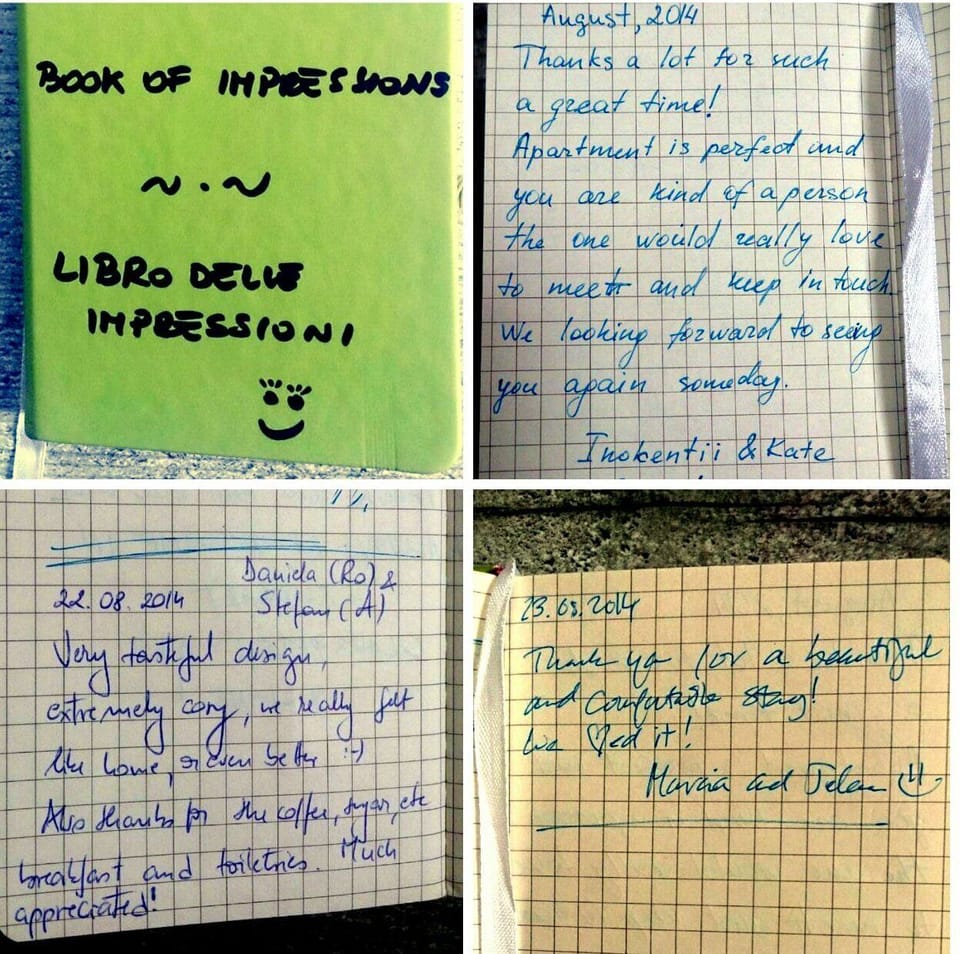 BOOK OF IMPRESSIONS
~.~
LIBRO DELLE
IMPRESSIONI
August, 2014
Thanks a lot for such
a great time!
Apartment is perfect and
you are kind of a person
the one would really love
to meet and keep in touch.
We looking forward to seeing
you again someday.
Inokentii & Kate
Daniela (Ro) &
22.08.2014 Stefan (A)
Very tasteful design,
extremely cozy, we really felt
like home, or even better :-)
Also thanks for the coffee, sugar, etc
breakfast and toiletries. Much
appreciated!
23.08.2014
Thank you for a beautiful
and comfortable stay!
We ♡ed it!
and